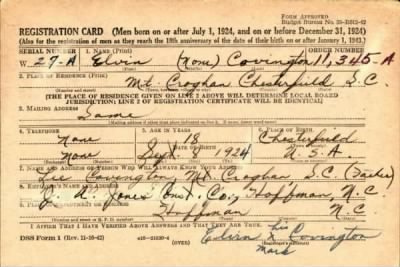 FORM APPROVED
REGISTRATION CARD (Men born on or after July 1, 1924, and on or before December 31, 1924)
(Also for the registration of men as they reach the 18th anniversary of the date of their birth on or after January 1, 1943.)
SERIAL NUMBER 1. NAME (Print) ORDER NUMBER
W. 27-A Elvin (None) Covington 11,345-A
2. PLACE OF RESIDENCE (Print)
Mt. Croghan Chesterfield S.C.
[THE PLACE OF RESIDENCE GIVEN ON LINE 2 ABOVE WILL DETERMINE LOCAL BOARD
JURISDICTION; LINE 2 OF REGISTRATION CERTIFICATE WILL BE IDENTICAL]
3. MAILING ADDRESS
Same
4. TELEPHONE 5. AGE IN YEARS 6. PLACE OF BIRTH
None 18 Chesterfield
DATE OF BIRTH
None Sept. 1924 U S A
7. NAME AND ADDRESS OF PERSON WHO WILL ALWAYS KNOW YOUR ADDRESS
Covington Mt Croghan S.C.
8. EMPLOYER'S NAME AND ADDRESS
J. A. Jones Const. Co., Hoffman, N.C.
Hoffman N C
I AFFIRM THAT I HAVE VERIFIED ABOVE ANSWERS AND THAT THEY ARE TRUE.
DSS Form 1 (OVER)
Elvin his X Covington
mark